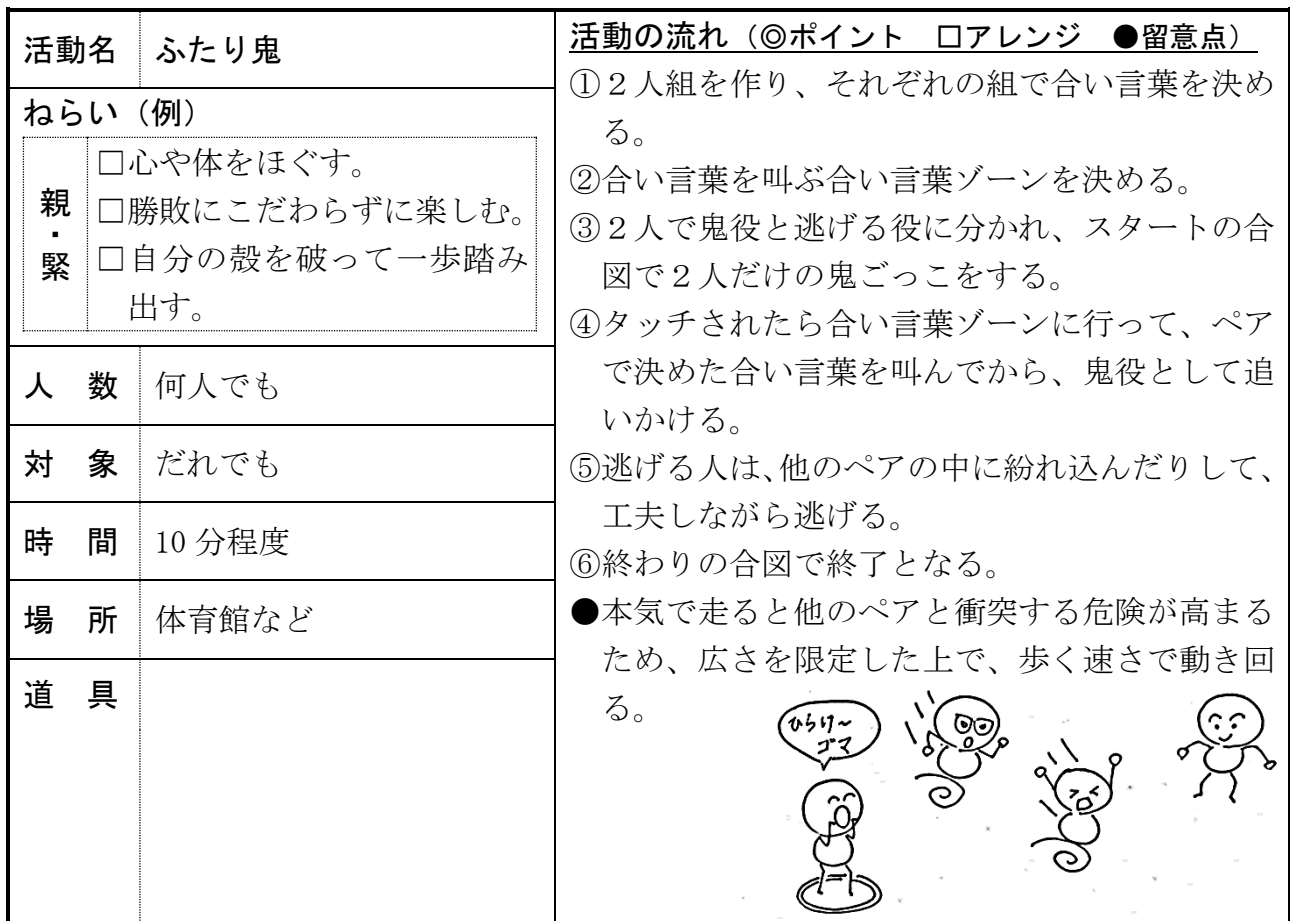 活動名 ふたり鬼
ねらい（例）
親・緊
□心や体をほぐす。
□勝敗にこだわらずに楽しむ。
□自分の殻を破って一歩踏み
出す。
人　数 何人でも
対　象 だれでも
時　間 10 分程度
場　所 体育館など
道　具
活動の流れ（◎ポイント　□アレンジ　●留意点）
①２人組を作り、それぞれの組で合い言葉を決め
る。
②合い言葉を叫ぶ合い言葉ゾーンを決める。
③２人で鬼役と逃げる役に分かれ、スタートの合
図で２人だけの鬼ごっこをする。
④タッチされたら合い言葉ゾーンに行って、ペア
で決めた合い言葉を叫んでから、鬼役として追
いかける。
⑤逃げる人は、他のペアの中に紛れ込んだりして、
工夫しながら逃げる。
⑥終わりの合図で終了となる。
●本気で走ると他のペアと衝突する危険が高まる
ため、広さを限定した上で、歩く速さで動き回
る。
ひらけ～
ゴマ